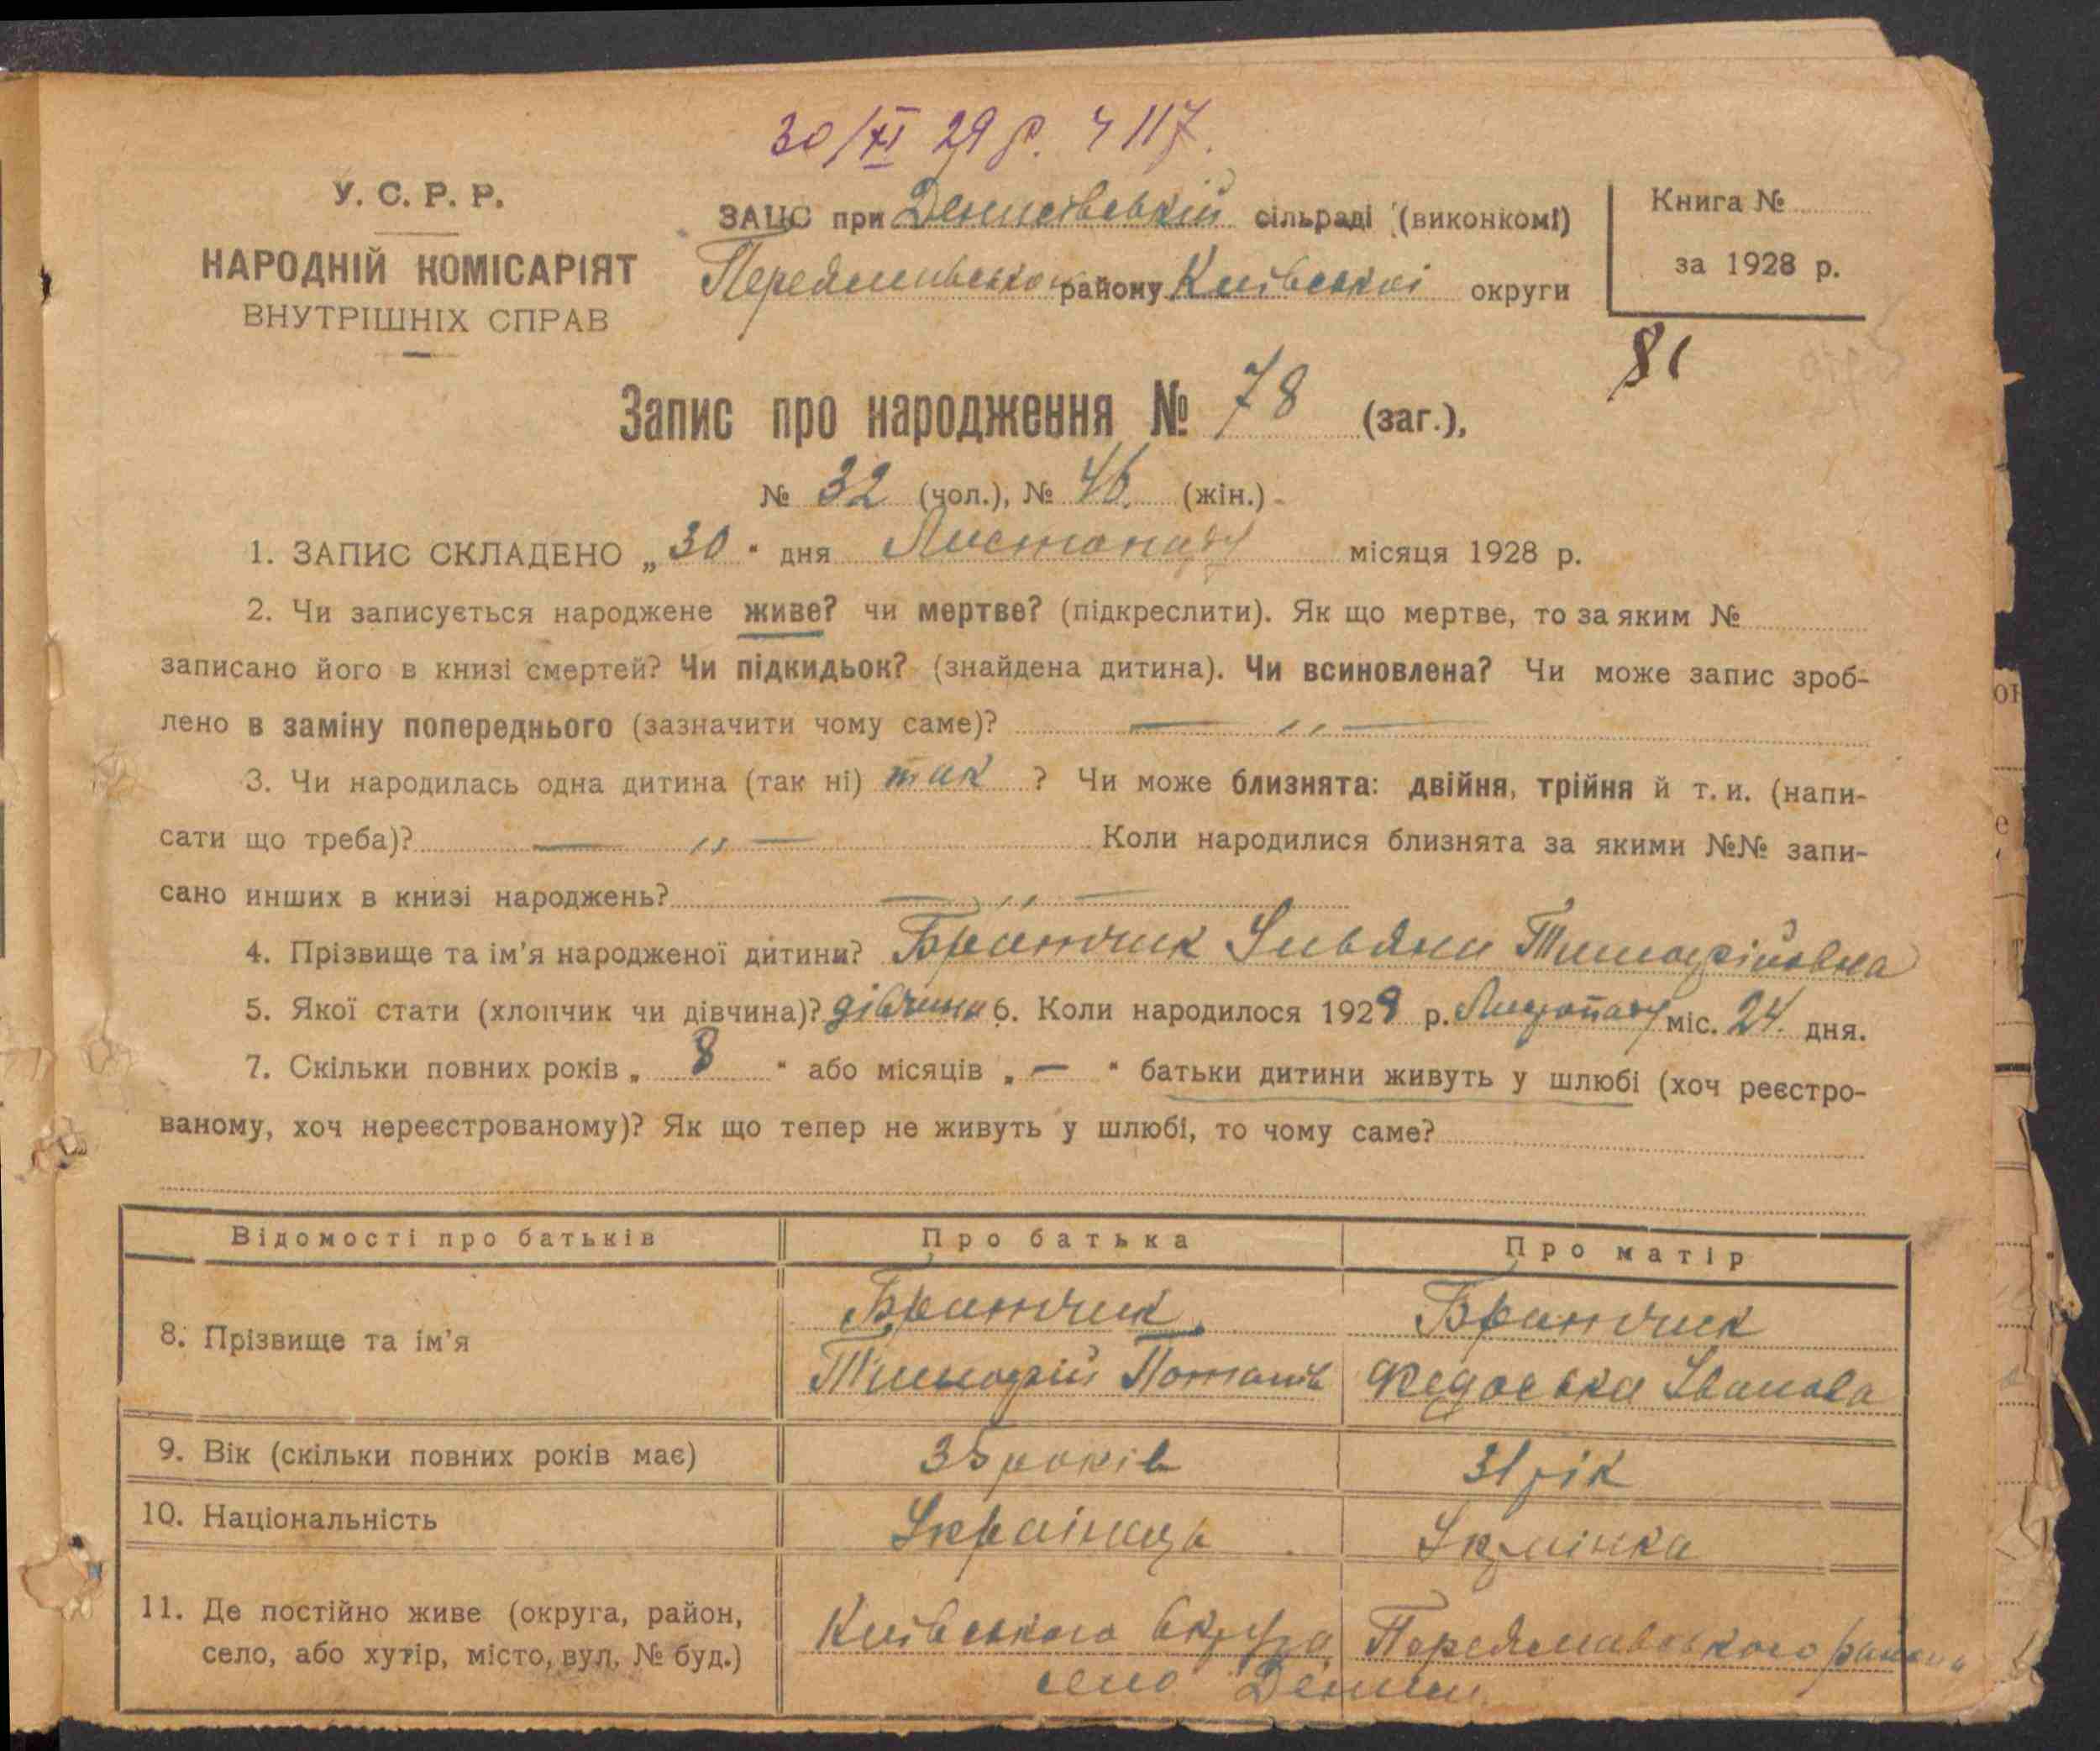 30/XI 29 р. Ч 117.
У. С. Р. Р.
НАРОДНІЙ КОМІСАРІЯТ
ВНУТРІШНІХ СПРАВ
ЗАЦС при Денисівській сільраді (виконкомі)
Переяславсько району Київської округи
Книга №
за 1928 р.
81
Запис про народження № 78 (заг.),
№ 32 (чол.), № 46. (жін.)
1. ЗАПИС СКЛАДЕНО „30“ дня Листопада місяця 1928 р.
2. Чи записується народжене живе? чи мертве? (підкреслити). Як що мертве, то за яким №
записано його в книзі смертей? Чи підкидьок? (знайдена дитина). Чи всиновлена? Чи може запис зроб-
лено в заміну попереднього (зазначити чому саме)? — ,, —
3. Чи народилась одна дитина (так ні) так ? Чи може близнята: двійня, трійня й т. и. (напи-
сати що треба)? — ,, — Коли народилися близнята за якими №№ запи-
сано инших в книзі народжень? — ,, —
4. Прізвище та ім'я народженої дитини? Бранчик Тимофіївна
5. Якої стати (хлопчик чи дівчина)? дівчина 6. Коли народилося 1928 р. Листопада міс. 24. дня.
7. Скільки повних років „ 8 “ або місяців „ — “ батьки дитини живуть у шлюбі (хоч реєстро-
ваному, хоч нереєстрованому)? Як що тепер не живуть у шлюбі, то чому саме?
Відомості про батьків Про батька Про матір
8. Прізвище та ім'я
Бранчик Бранчик
Тимофій Потапів Федоська Іванова
9. Вік (скільки повних років має) 35 років 31 рік
10. Національність Українець Українка
11. Де постійно живе (округа, район,
село, або хутір, місто, вул. № буд.)
Київського Переяславського района
село Дениси